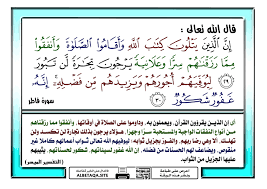 قال الله تعالى :
إِنَّ الَّذِينَ يَتْلُونَ كِتَابَ اللَّهِ وَأَقَامُوا الصَّلَاةَ وَأَنفَقُوا
مِمَّا رَزَقْنَاهُمْ سِرًّا وَعَلَانِيَةً يَرْجُونَ تِجَارَةً لَّن تَبُورَ
٢٩ لِيُوَفِّيَهُمْ أُجُورَهُمْ وَيَزِيدَهُم مِّن فَضْلِهِ إِنَّهُ
غَفُورٌ شَكُورٌ ٣٠
سورة فاطر
أي إن الذين يقرؤون القرآن، ويعملون به، وداوموا على الصلاة في أوقاتها، وأنفقوا مما رزقناهم
من أنواع النفقات الواجبة والمستحبة سرًّا وجهرًا، هؤلاء يرجون بذلك تجارة لن تكسد ولن
تهلك، ألا وهي رضا ربهم، والفوز بجزيل ثوابه؛ ليوفيهم الله تعالى ثواب أعمالهم كاملا غير
منقوص، ويضاعف لهم الحسنات من فضله، إن الله غفور لسيئاتهم، شكور لحسناتهم، يثيبهم
عليها الجزيل من الثواب.
[ التفسير الميسر ]
ALBETAQA.SITE